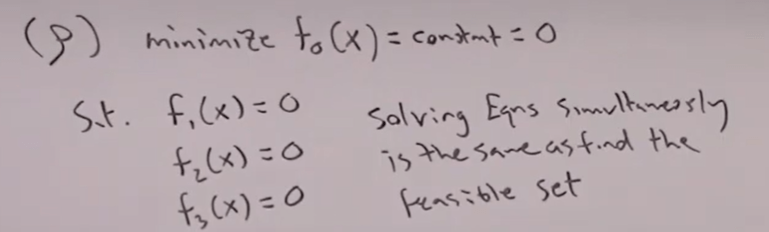 (P) minimize f₀(x) = constant = 0
s.t. f₁(x) = 0 Solving Eqns simultaneously
f₂(x) = 0 is the same as find the
f₃(x) = 0 feasible set